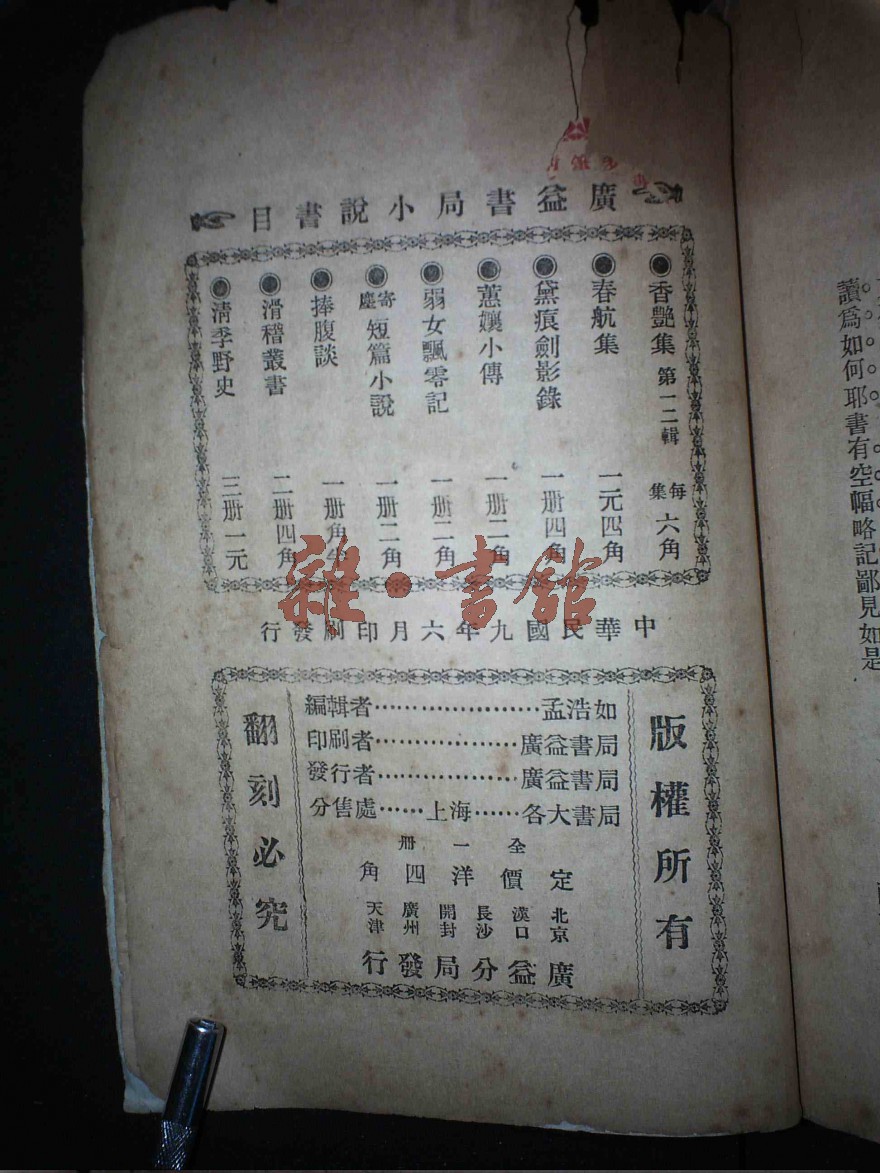 廣益書局小說書目
香艷集 第一二輯 每集 六角
春航集 一元四角
黛痕劍影錄 一册四角
蕙孃小傳 一册二角
弱女飄零記 一册二角
寄塵短篇小說 一册二角
捧腹談 一册角半
滑稽叢書 二册四角
清季野史 三册一元
中華民國九年六月印刷發行
版權所有
編輯者……孟浩如
印刷者……廣益書局
發行者……廣益書局
分售處……上海……各大書局
全一册
定價洋四角
北京 漢口 長沙 開封 廣州 天津
廣益分局發行
翻刻必究
讀爲如何耶書有空幅略記鄙見如是
雜·書館